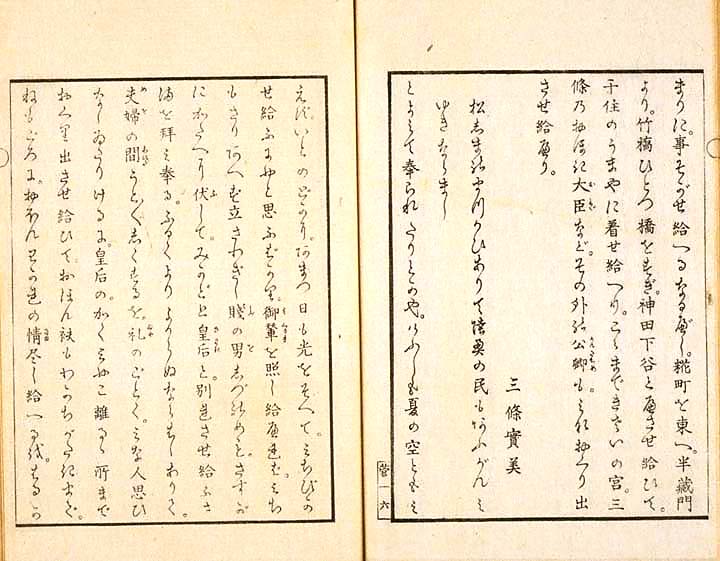 まりに。事そがせ給へるなるべし。糀町を東へ。半蔵門
より。竹橋ひとつ橋をすぎ。神田下谷と歴させ給ひて。
千住のうまやに着せ給へり。こゝまできさいの宮。三
條乃おほき大臣など。その外の公卿も。みなおくり出
させ給へり。
三條實美
松しまの かひありて陸奥の民もあふがんみ
ゆきならまし
とよみて奉られたりとかや。けふしも夏の空とも
えず。いとのどかに。あまつ日も光をそへて。みちびか
せ給ふにやと思ふばかり。御輦を照し給へれば。みち
もさりあへず立さわぎし賤の男しづのめら。さすが
にかたへに伏して。みかどと皇后と。別れさせ給ふさ
まを拝み奉る。ふるくよりよからぬならはしありて。
夫婦の間うと〳〵しくするを。礼のごとく。みな人思ひ
なしゐたりけるに。皇后の。かくみやこ離るゝ所まで
おくり出させ給ひて。おほん袂もわかちがたきまで。
ねもごろに。おほんわかれの情尽し給へるは。
菅一六